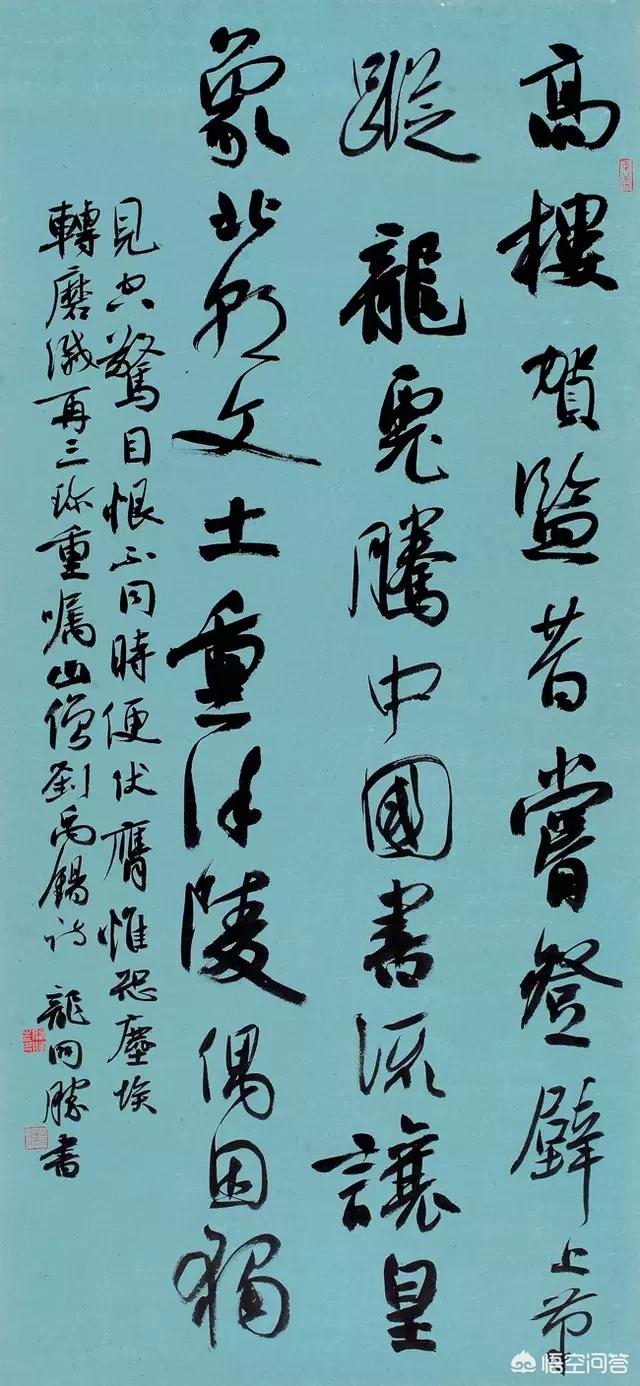 高樓賀監昔嘗登壁上筆
蹤龍虎騰中國書流讓皇
象北朝文士重徐陵偶因獨
見空驚目恨不同時便伏膺惟恐塵埃
轉磨滅再三珍重嘱山僧劉禹錫詩 龍開勝書
悟空问答